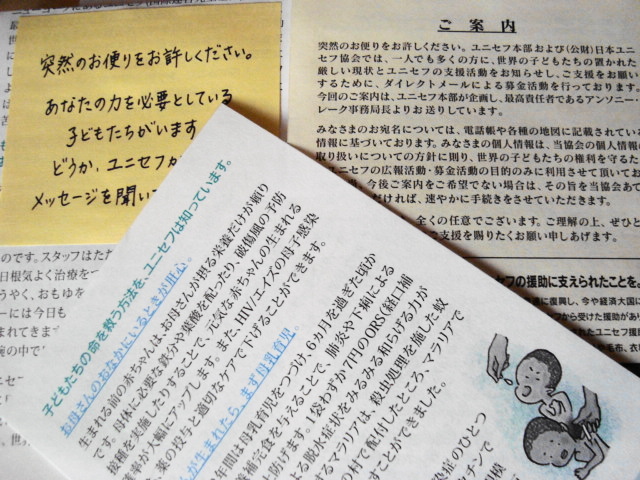 突然のお便りをお許しください。
あなたの力を必要としている
子どもたちがいます
どうか、ユニセフか
メッセージを聞いて
ご案内
突然のお便りをお許しください。ユニセフ本部および(公財)日本ユニ
セフ協会では、一人でも多くの方に、世界の子どもたちの置かれた
厳しい現状とユニセフの支援活動をお知らせし、ご支援をお願い
するために、ダイレクトメールによる募金活動を行っております。
今回のご案内は、ユニセフ本部が企画し、最高責任者であるアンソニー・
レーク事務局長よりお送りしています。
みなさまのお宛名については、電話帳や各種の地図に記載されている
情報に基づいております。みなさまの個人情報は、当協会の個人情報の
取り扱いについての方針に則り、世界の子どもたちの権利を守るた
の広報活動・募金活動の目的のみに利用させて頂いてお
今後ご案内をご希望でない場合は、その旨を当協会あて
ければ、速やかに手続きをさせていただきます。
全くの任意でございます。ご理解の上、ぜひと
ご支援を賜りたくお願い申しあげます。
子どもたちの命を救う方法を、ユニセフは知っています。
お母さんのおなかにいるときが肝心。
生まれる前の赤ちゃんは、お母さんが摂る栄養だけが頼り
です。母体に必要な鉄分や葉酸を配ったり、破傷風の予防
接種を実施したりすることで、元気な赤ちゃんの生まれる
確率が大幅にアップします。また、HIV/エイズの母子感染
薬の投与と適切なケアで下げることができます。
が生まれたら、まず母乳育児。
年間は母乳育児をつづけ、6カ月を過ぎた頃か
補完食を与えることで、肺炎や下痢による
上防げます。1袋わずか7円のORS(経口補
よる脱水症状をみるみる和らげる力が
するマラリアは、殺虫処理を施した蚊
の村で配付したところ、マラリアで
すことができました。
染症のひとつ
クチンで
規模
のです。スタッフはただ
日根気よく治療をつ
うやく、おもゆを
ーには今日も
まれてきます
腕の中で
フの援助に支えられたことを。
に復興し、今や経済大国に
から受けた援助があり
れたユニセフ援
毛布、衣